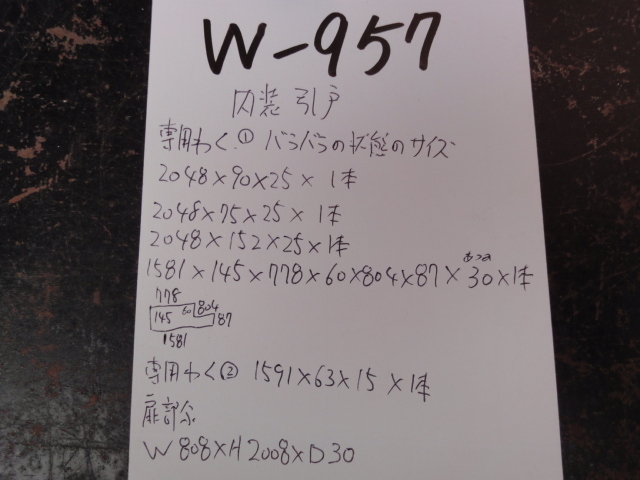 W-957
内装 引戸
専用わく① バラバラの状態のサイズ
2048×90×25 × 1本
2048×75×25 × 1本
2048×152×25×1本
あつみ
1581×145×778×60×804×87×30×1本
778
145 60 804
87
1581
専用わく② 1591×63×15 ×1本
扉部分
W 808×H 2008×D30